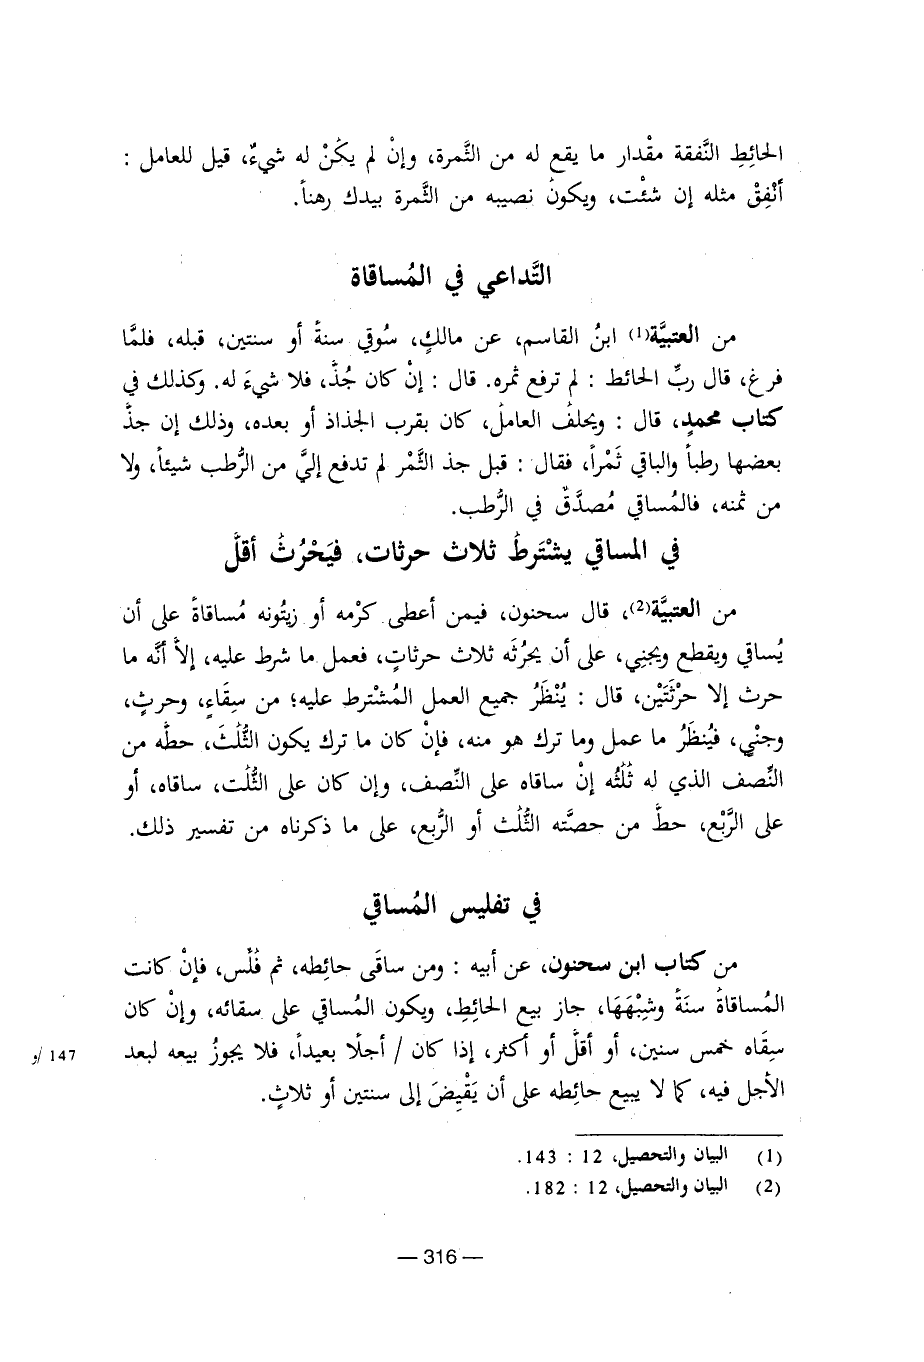 الحائِطِ النَّفقة مقْدار ما يقع له من الثَّمرة، وإنْ لم يكُنْ له شيءٌ، قيل للعامل :
أَنْفِقْ مثله إن شئْت، ويكونُ نصيبه من الثَّمرة بيدك رهناً.
التَّداعي في المُساقاة
من العتبيَّة(1) ابنُ القاسم، عن مالكٍ، سُوقي سنةً أو سنتين، قبله، فلمَّا
فرغ، قال ربُّ الحائط : لم ترفع ثمره. قال : إنْ كان جُذَّ، فلا شيءَ له. وكذلك في
كتاب محمدٍ، قال : ويحلفُ العاملُ، كان بقرب الجذاذ أو بعده، وذلك إن جذَّ
بعضها رطباً والباقي ثَمْراً، فقال : قبل جذ الثَّمْر لم تدفع إليَّ من الرُّطب شيئاً، ولا
من ثمنه، فالمُساقي مُصدَّقٌ في الرُّطب.
في المساقي يشْتَرطُ ثلاث حرثات، فيَحْرُثُ أقلَّ
من العتبيَّة(2)، قال سحنون، فيمن أعطى كرْمه أو زيتُونه مُساقاةً على أن
يُساقي ويقطع ويجنِي، على أن يحرُثَه ثلاث حرثاتٍ، فعمل ما شرط عليه، إلاَّ أنَّه ما
حرث إلا حرْثَتَيْن، قال : يُنْظَرُ جميع العمل المُشْترط عليه؛ من سِقَاءٍ، وحرثٍ،
وجنْيٍ، فيُنظَرُ ما عمل وما ترك هو منه، فإنْ كان ما ترك يكون الثُّلُثَ، حطَّه من
النِّصف الذي له ثُلُثُه إنْ ساقاه على النِّصف، وإن كان على الثُّلُت، ساقاه، أو
على الرَّبْع، حطَّ من حصَّته الثُّلُث أو الرُّبع، على ما ذكرناه من تفسير ذلك.
في تفليس المُساقي
من كتاب ابن سحنون، عن أبيه : ومن ساقَى حائِطه، ثم فُلِّس، فإنْ كانت
المُساقاةُ سنَةً وشِبْهَهَا، جاز بيع الحائِطِ، ويكون المُساقي على سقائه، وإنْ كان
سِقَاه خمس سنين، أو أقلَّ أو أكثر، إذا كان / أجلًا بعيداً، فلا يجوزُ بيعه لبعد
147 /و
الأجل فيه، كما لا يبيع حائِطه على أن يَقْبِضَ إلى سنتين أو ثلاثٍ.
(1) البيان والتحصيل، 12 : 143.
(2) البيان والتحصيل، 12 : 182.
— 316 —